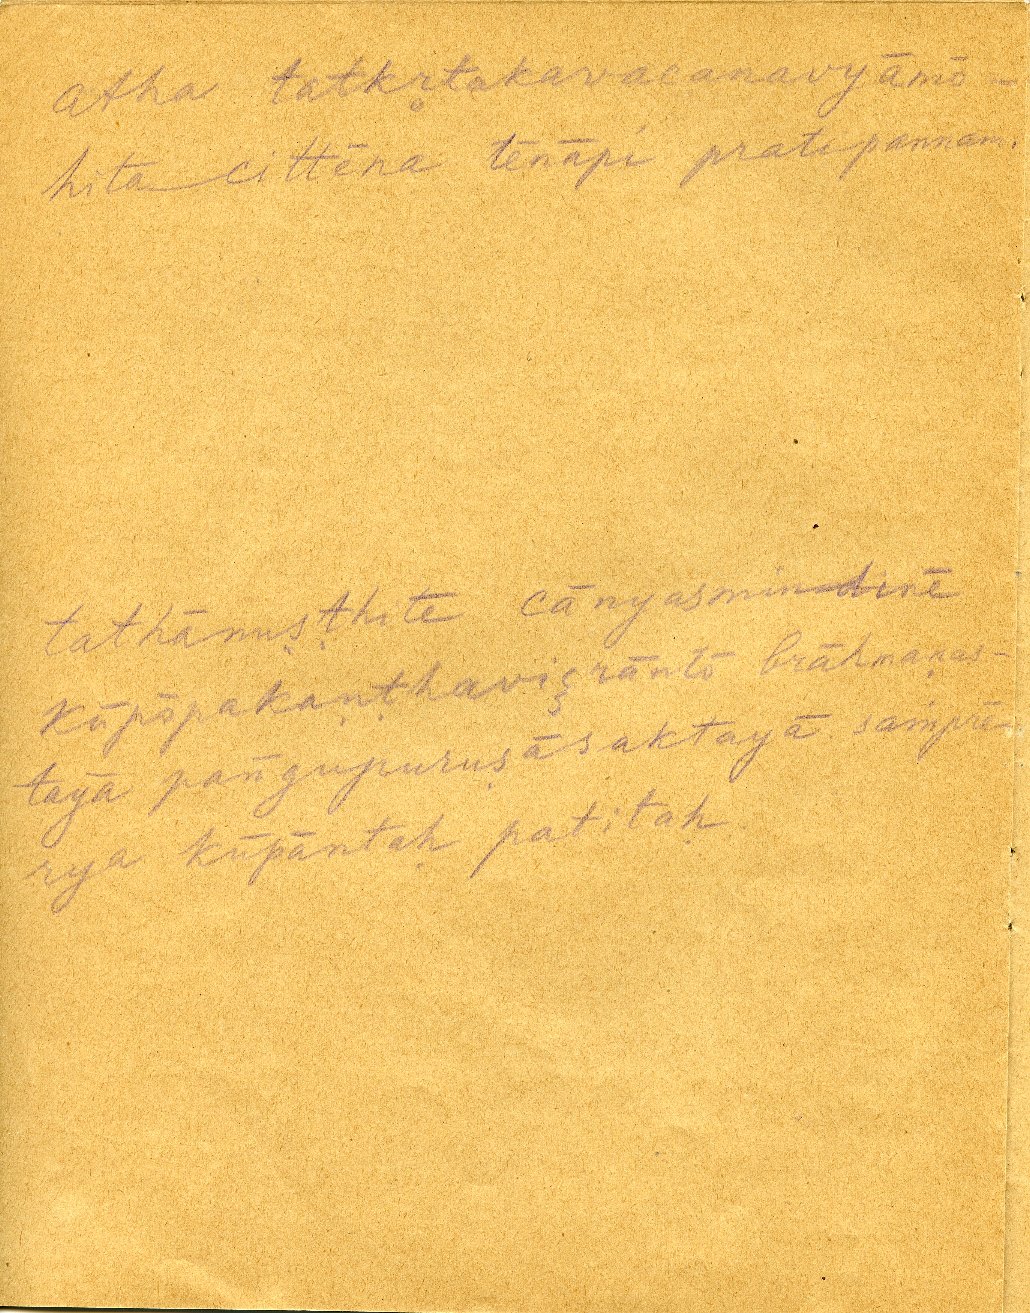 atha tatkr̥takavacanavyāmō-
hita cittēna tēnāpi pratipannam.
tathānuṣṭhitē cānyasmin dinē
kūpōpakaṇṭhaviçrāntō brāhmaṇas-
tayā pan̄gupuruṣāsaktayā saṁprē-
rya kūpāntaḥ patitaḥ